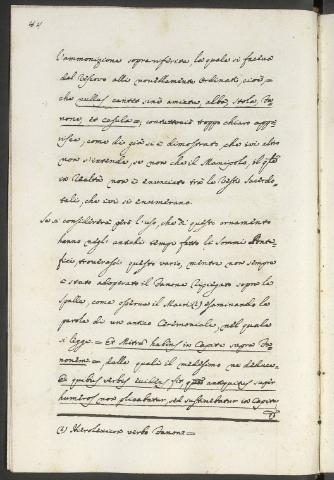 44
l'ammonizione sopra riferita, la quale si facea
dal Vescovo alli novellamente ordinati, cioè,
che nullus cantet sine amictu, alba, stola, Fa-
none, et casula =, contuttociò troppo chiaro appa-
risce, come di già si è dimostrato, che ivi altro
non s'intende, se non che il Manipolo, il qle
in realtà non è enunciato trà le Vesti Sacerdo-
tali, che ivi si enumerano.
Se si considererà però l'uso, che di questo ornamento
hanno negli antichi tempi fatto li Sommi Ponte-
fici, troverassi questo vario, mentre non sempre
è stato adoperato il Fanone ripiegato sopra le
spalle, come osserva il Macri (1) esaminando le
parole di un antico Ceremoniale, nel quale
si legge = Et Mitra habens in Capite supra Fa-
nonem = dalle quali il medesimo ne deduce =
Ex quibus verbis evidens fit, quod antiquitus super
humeros non plicabatur, sed sustinebatur in Capite
(1) Hierolexicon verbo Fanon =